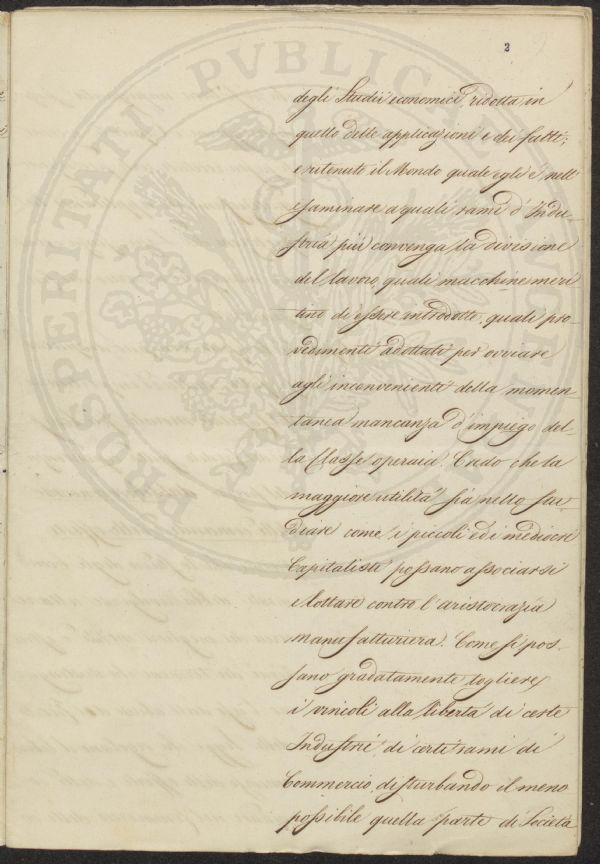 2
degli Studii economici ridotta in
quello delle applicazioni e dei fatti;
e ritenuto il Mondo quale egli è nell'
esaminare a quali rami d'Indu-
stria più convenga la divisione
del lavoro, quali macchine meri
tino di essere introdotte, quali pro-
vedimenti adottati per ovviare
agli inconvenienti della momen-
tanea mancanza d'impiego del-
la Classe operaia. Credo che la
maggiore utilità sia nello stu-
diare come i piccoli ed i mediocri
Capitalisti possano associarsi
e lottare contro l'aristocrazia
manufatturiera. Come si pos-
sano gradatamente togliere
i vincoli alla libertà di certe
Industrie, di certi rami di
Commercio, disturbando il meno
possibile quella parte di Società
PROSPERITATI PUBLICAE